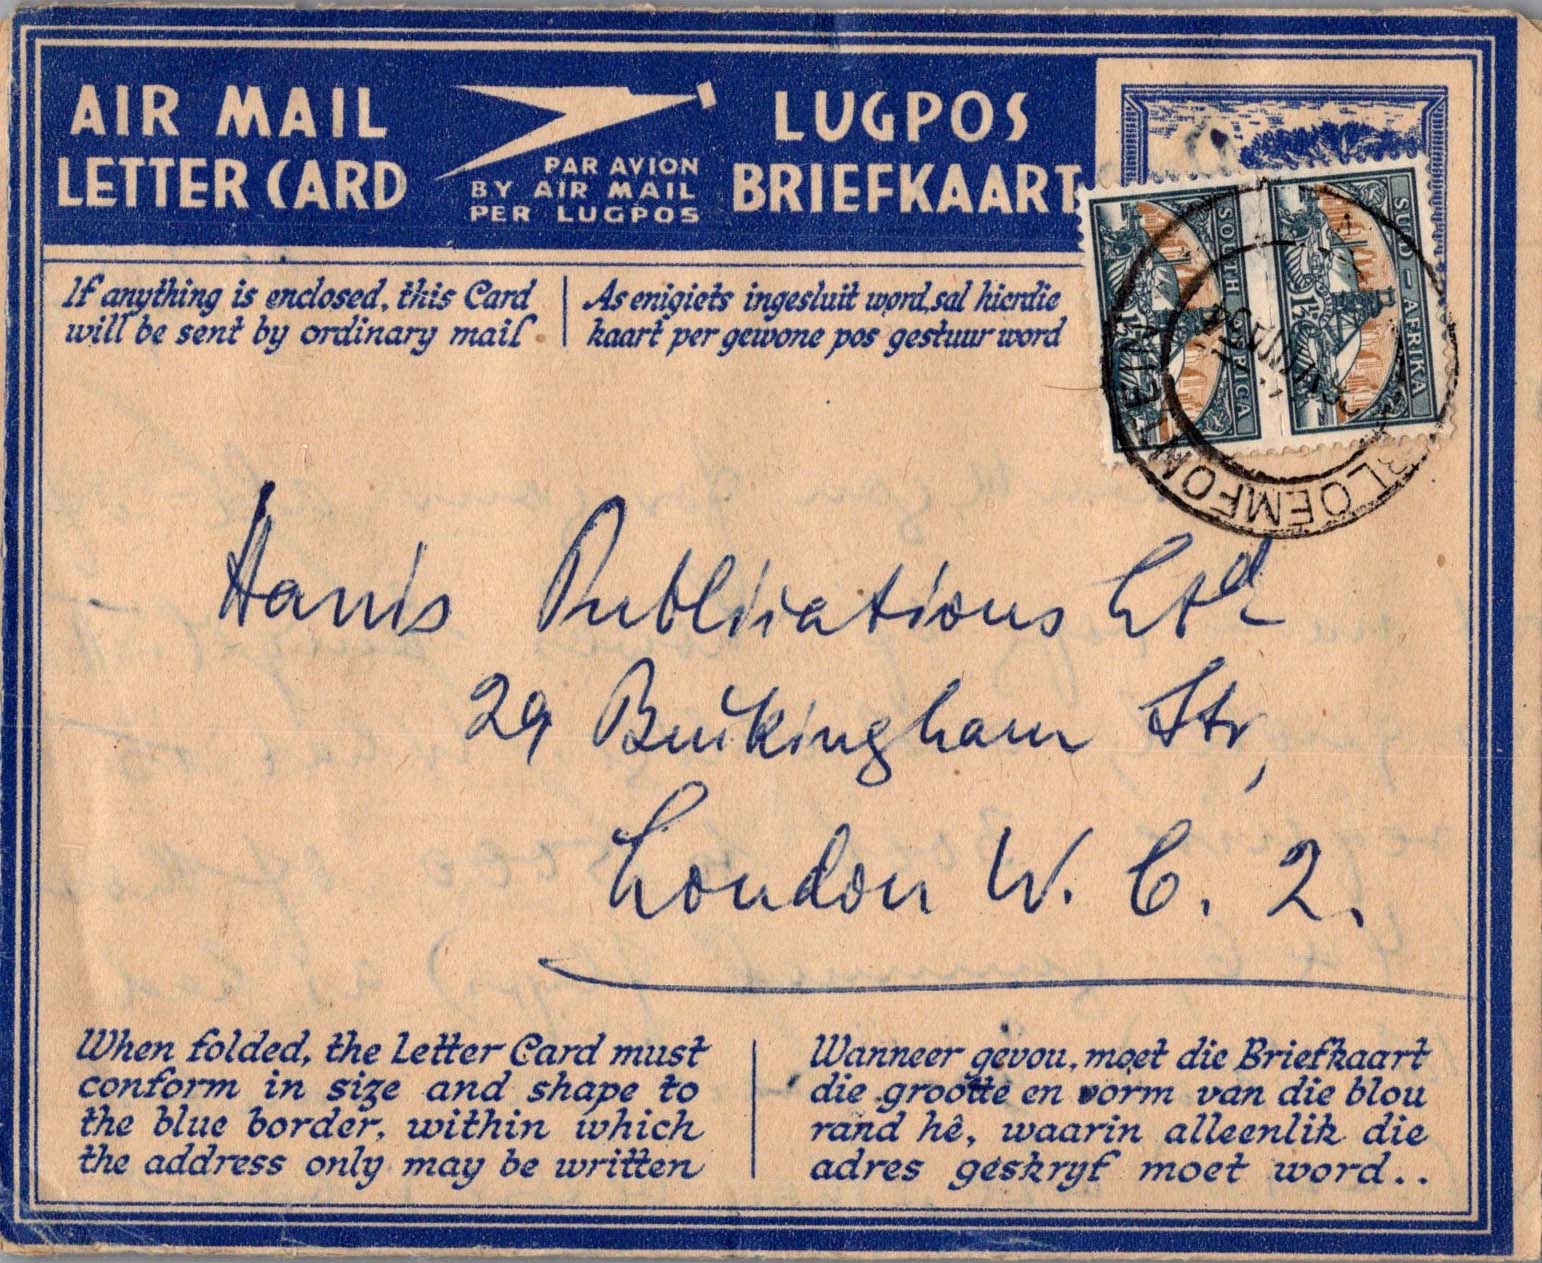 AIR MAIL
LETTER CARD
PAR AVION
BY AIR MAIL
PER LUGPOS
LUGPOS
BRIEFKAART
If anything is enclosed, this Card
will be sent by ordinary mail.
As enigiets ingesluit word, sal hierdie
kaart per gewone pos gestuur word
SOUTH AFRICA
SUID-AFRIKA
1½
BLOEMFONTEIN
Harris Publications Ltd
29 Buckingham Str,
London W. C. 2.
When folded, the Letter Card must
conform in size and shape to
the blue border, within which
the address only may be written
Wanneer gevou, moet die Briefkaart
die grootte en vorm van die blou
rand hê, waarin alleenlik die
adres geskryf moet word..